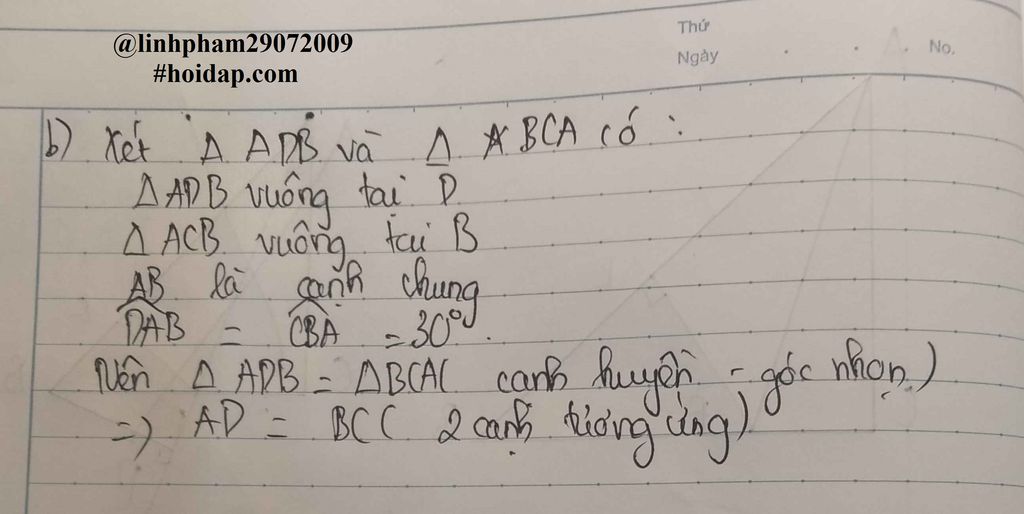 @linhpham29072009
#hoidap.com
Thứ
Ngày
No.
b) Xét Δ ADB và Δ BCA có :
ΔADB vuông tại D
Δ ACB vuông tại B
AB là cạnh chung
DAB = CBA = 30°.
Nên Δ ADB = ΔBCA( cạnh huyền - góc nhọn)
=) AD = BC( 2 cạnh tương ứng)